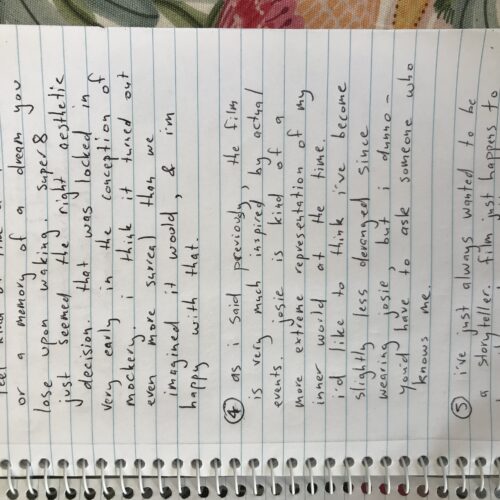 or a memory of a dream you
lose upon waking. Super 8
just seemed the right aesthetic
decision. that was locked in
very early in the conception of
mockery. i think it turned out
even more surreal than we
imagined it would, & i'm
happy with that.
④ as i said previously, the film
is very much inspired by actual
events. josie is kind of a
more extreme representation of my
inner world at the time.
i'd like to think i've become
slightly less deranged since
wearing josie, but i dunno -
you'd have to ask someone who
knows me.
⑤ i've just always wanted to be
a storyteller. film just happens to